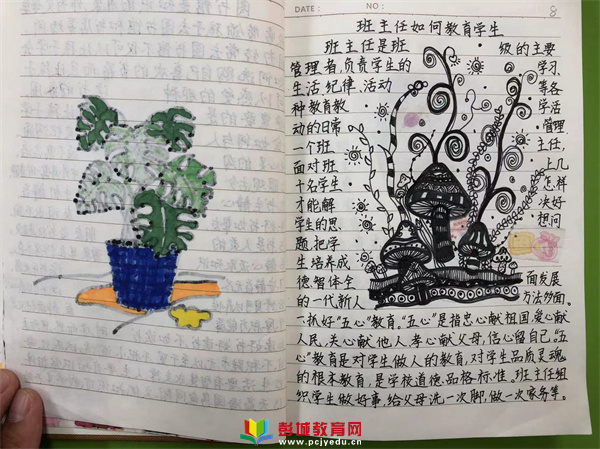 DATE: NO: 8
班主任如何教育学生
班主任是班 级的主要
管理者,负责学生的 学习、
生活、纪律、活动 等各
种教育教 学活
动的日常 管理
一个班 主任,
面对班 上几
十名学生 怎样
才能解 决好
学生的思 想问
题,把学
生培养成
德智体全 面发展
的一代新人 方法多面。
一.抓好“五心”教育。“五心”是指忠心献祖国,爱心献
人民,关心献他人,孝心献父母,信心留自己。“五
心”教育是对学生做人的教育,对学生品质灵魂
的根本教育,是学校道德、品格标准。班主任组
织学生做好事,给父母洗一次脚,做一次家务等。
彭城教育网
www.pcjyedu.cn